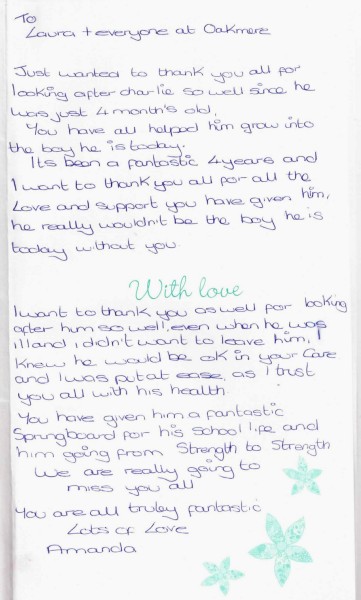 To
Laura + everyone at Oakmere
Just wanted to thank you all for
looking after charlie so well since he
was just 4 month's old,
You have all helped him grow into
the boy he is today.
Its been a fantastic 4 years and
I want to thank you all for all the
Love and support you have given him,
he really wouldn't be the boy he is
today without you.
With love
I want to thank you as well for looking
after him so well, even when he was
ill and i didn't want to leave him, I
knew he would be ok in your care
and I was put at ease, as I trust
you all with his health.
You have given him a fantastic
Springboard for his school life and
him going from Strength to Strength
We are really going to
miss you all
You are all truley fantastic
Lots of Love
Amanda